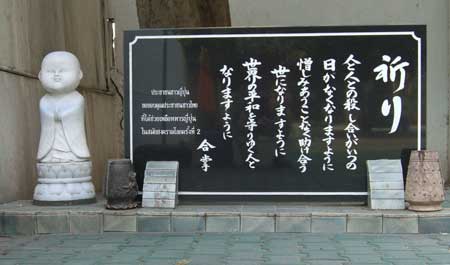 祈り
人と人の殺し合いがいつの
日かなくなりますように
憎しみあうことなく助け合う
世になりますように
世界の平和を守りゆく人と
なりますように
合掌
ประชาชนชาวญี่ปุ่น
ขอขอบคุณประชาชนชาวไทย
ที่ได้ช่วยเหลือทหารญี่ปุ่น
ในสมัยสงครามโลกครั้งที่ 2